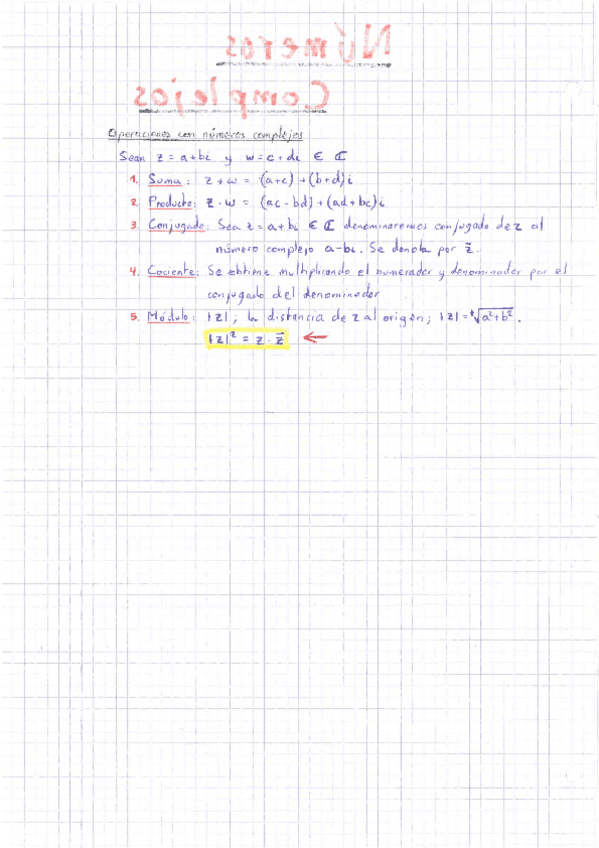 Números
Complejos
Operaciones con números complejos
Sean z = a + bi y w = c + di ∈ ℂ
1. Suma: z + w = (a+c) + (b+d)i
2. Producto: z · w = (ac - bd) + (ad + bc)i
3. Conjugado: Sea z = a + bi ∈ ℂ denominaremos conjugado de z al
número complejo a - bi. Se denota por z̄.
4. Cociente: Se obtiene multiplicando el numerador y denominador por el
conjugado del denominador
5. Módulo: |z| ; la distancia de z al origen; |z| = ⁺√(a² + b²).
|z|² = z · z̄ ←